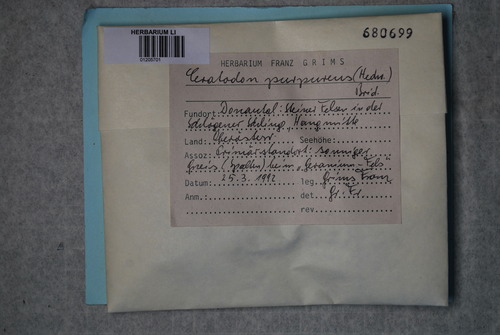 HERBARIUM LI
01205701
680699
HERBARIUM FRANZ GRIMS
Ceratodon purpureus (Hedw.)
Brid.
Fundort: Donautal: kleiner Felsen in der
Schlögener Schlinge, Hangmitte
Land: Oberösterr. Seehöhe:
Assoz: Primärstandort: sonniger
Gneis (Perlgn.) beim "Geranium-Fels"
Datum: 25.3.1992 leg. Grims Franz
Anm.: det. Gr. Fr.
rev.